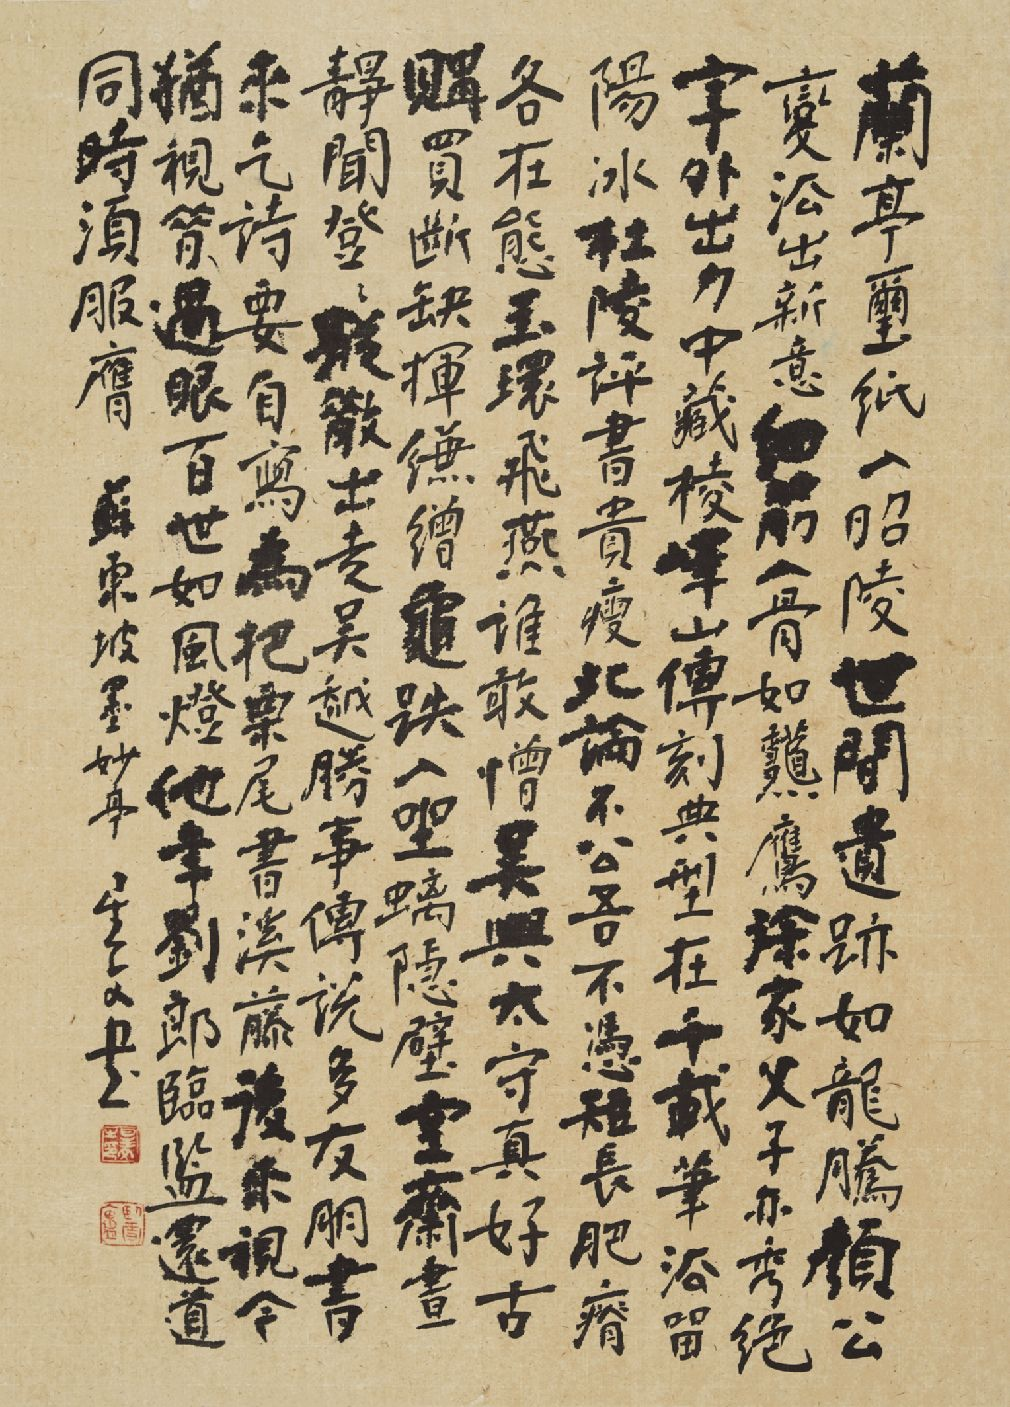 蘭亭璽紙入昭陵世間遺跡如龍騰顏公
變法出新意細筋入骨如龝鷹徐家父子亦秀絕
字外出力中藏棱嶧山傳刻典型在千載筆法留
陽冰杜陵評書貴瘦此論不公吾不憑短長肥瘠
各在態玉環飛燕誰敢憎吳興太守真好古
購買斷缺揮縑繒龜趺入坐螭隱壁空齋晝
靜聞登〻蹤散出走吳越勝事傳說多友朋書
來乞詩要自寫為把栗尾書溪藤後來視今
猶視昔過眼百世如風燈他年劉郎臨監還道
同時須服膺 蘇東坡墨妙亭 書